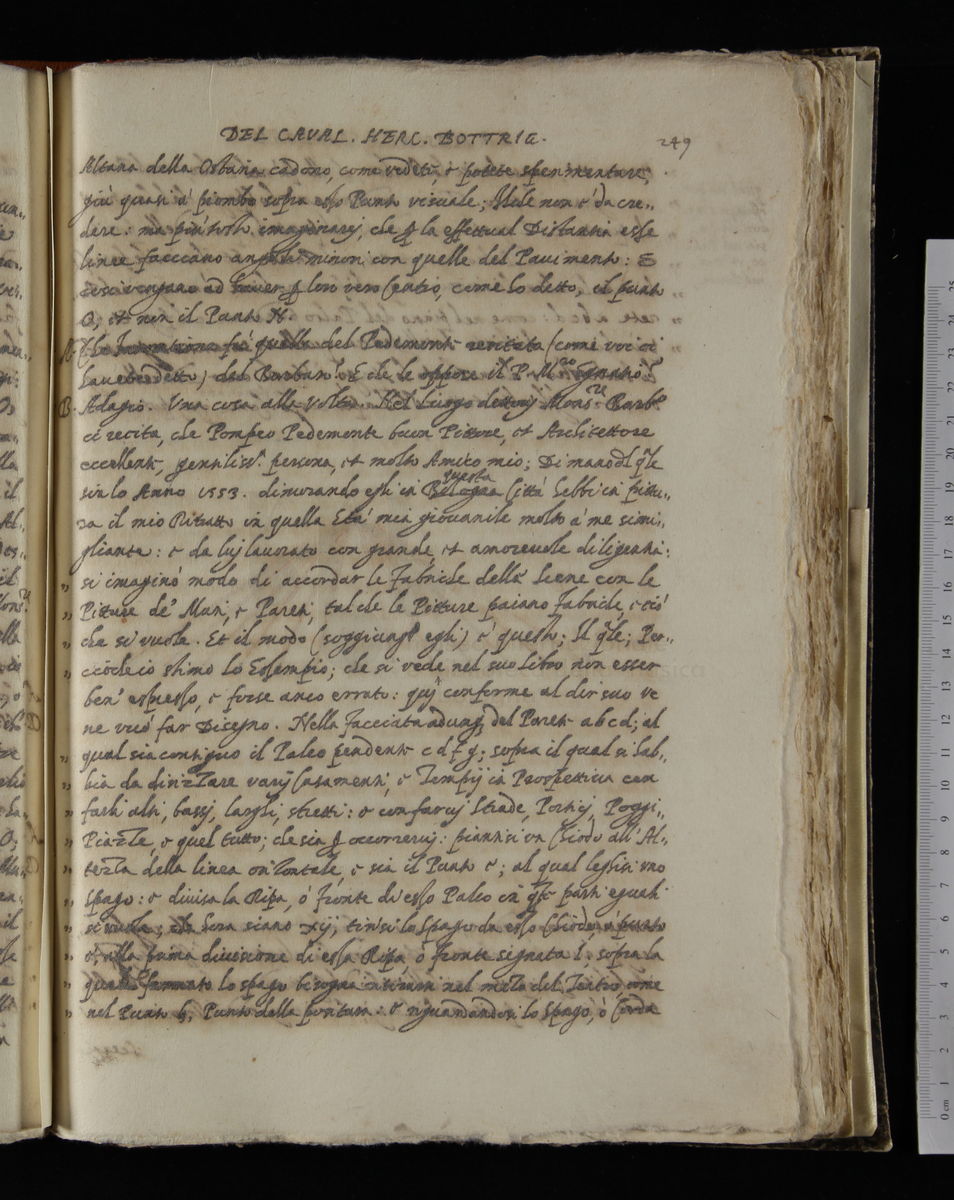 DEL CAVAL. HERC. BOTTRIG. 249
Altana della Osteria cadono, come vedete, e potete sperimentare,
giù quasi à piombo sopra esso Punto visuale; Il che non è da cre„
dere: ma più tosto imaginarsi, che p la effettual Distantia esse
linee facciano angoli minori con quelle del Pavimento: E
così vengano ad haver p loro vero Centro, come ho detto, il punto
O, et non il Punto N.
A. fù quella del Pedemonte recitata (come voi ci
havete detto) dal Barbaro. E che le oppose il P. M.ro Egnatio?
B. Adagio. Una cosa alla volta. Nel luogo Mons.r Barb.o
ci recita, che Pompeo Pedemonte buon Pittore, et Architettore
eccellente, gentiliss.a persona, et molto Amico mio; Di mano dl qle
sin lo Anno 1553. dimorando egli in questa Bologna Città hebbi in pittu„
ra il mio Ritratto in quella Età mia giovanile molto à me simi„
gliante: e da luj lavorato con grande, et amorevole diligentia:
„ si imaginò modo di accordar le fabriche delle Scene con le
„ Pitture de' Muri, e Pareti, tal che le Pitture paiano fabriche, e ciò
„ che si vuole. Et il modo (soggiunge egli) è questo; Il qle; Per„
cioche io stimo lo Essempio; che si vede nel suo libro non esser
ben' espresso, e forse anco errato: quj conforme al dir suo ve
ne vuò far Disegno. Nella facciata adunq, del Parete a b c d; al
„ qual sia contiguo il Palco pendente c d f g; sopra il qual si hab„
„ bia da dirizzare varij Casamenti, e Tempij in Prospettiva con
„ farli alti, bassi, larghi, stretti: e con farvj Strade, Portici, Poggi,
„ Piazze, e quel tutto; che sia p occorrervj: piantisi un Chiodo all' Al„
„ tezza della linea orizontale, e sia il Punto e; al qual leghisi uno
„ spago: e divisa la Ripa, ò fronte di esso Palco in qte parti eguali
„ si vuole, hora siano xij, tirisi lo Spago da esso Chiodo, ò punto
„ e, alla prima divisione di essa Ripa, ò fronte segnata 1. sopra la
„ quale fermato lo spago bisogna ritirarsi nel mezo del Teatro come
„ nel Punto h, Punto della : e riguardando lo Spago, ò Corda